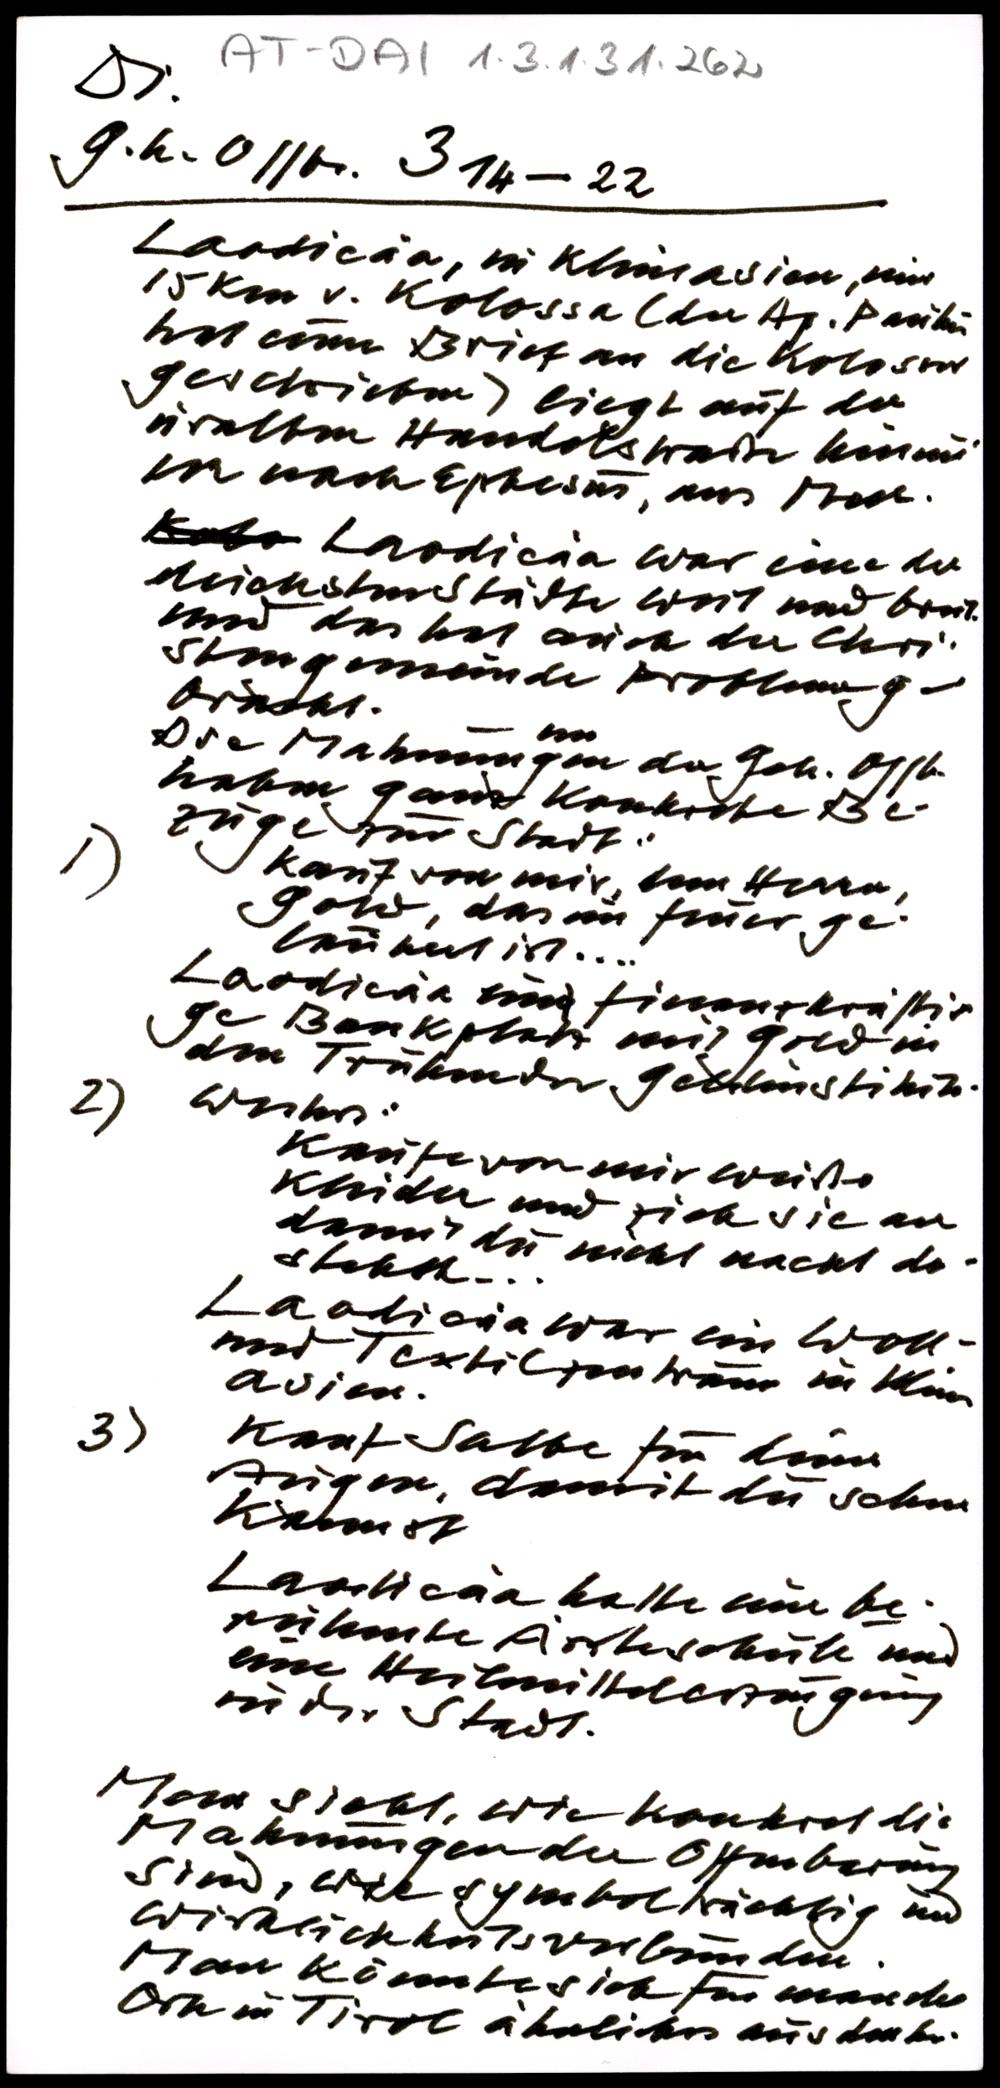 AT-DAI 1.3.1.31.262
Di.
g.h. Offbr. 3 14-22
Laodicäa, in Kleinasien, nur
15 Km v. Kolossä (der Ap. Paulus
hat einen Brief an die Kolosser
geschrieben) liegt auf der
uralten Handelsstraße
nach Ephesus, ans Meer.
Kolo Laodicäa war eine der
reichsten Städte weit und breit.
Und das hat auch der Chri-
stengemeinde Probleme ge-
bracht.
Die Mahnungen in der Geh. Offb.
haben ganz konkrete Be-
züge zur Stadt:
1) Kauf von mir, dem Herrn,
Gold, das im Feuer ge-
läutert ist....
Laodicäa ein finanzkräfti-
ge Bankplatz mit Gold in
den Truhen der Geldinstitute.
2) Weiters:
Kaufe von mir weiße
Kleider und zieh sie an
damit du nicht nackt da-
stehst...
Laodicäa war ein Woll-
und Textilzentrum in Klein
asien.
3) Kauf Salbe für deine
Augen, damit du sehen
kannst
Laodicäa hatte eine be-
rühmte Ärzteschule und
eine Heilmittelerzeugung
in der Stadt.
Man sieht, wie konkret die
Mahnungen der Offenbarung
sind, wie symbolträchtig und
wirklichkeitsverbunden.
Man könnte sich für manche
Orte in Tirol ähnliches ausdenken.